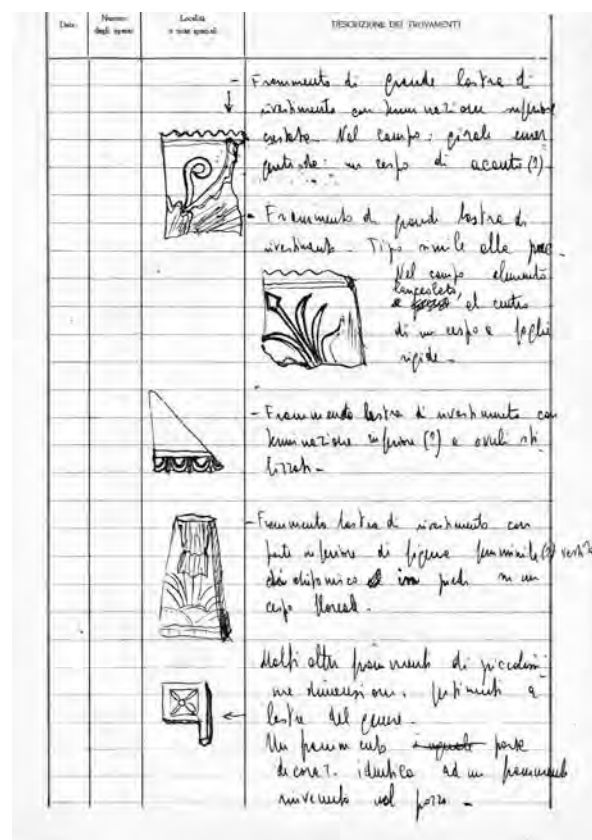 Data
Numero degli operai
Località e note speciali
DESCRIZIONE DEI TROVAMENTI
- Frammento di grande lastra di
rivestimento con terminazione superiore
crestata. Nel campo: girale emer
gente da un cespo di acanto (?)
- Frammento di grande lastra di
rivestimento - Tipo simile alla prec.
Nel campo elemento
lanceolato,
al centro
di un cespo a foglie
rigide -
- Frammento lastra di rivestimento con
terminazione inferiore (?) a ovuli sti
lizzati -
- Frammento lastra di rivestimento con
parte inferiore di figura femminile (?) vestita
in piedi su un
cespo floreale -
Molti altri frammenti di piccolissi
me dimensioni, pertinenti a
lastre del genere -
Un frammento parte
decoraz. identica ad un frammento
rinvenuto nel pozzo -